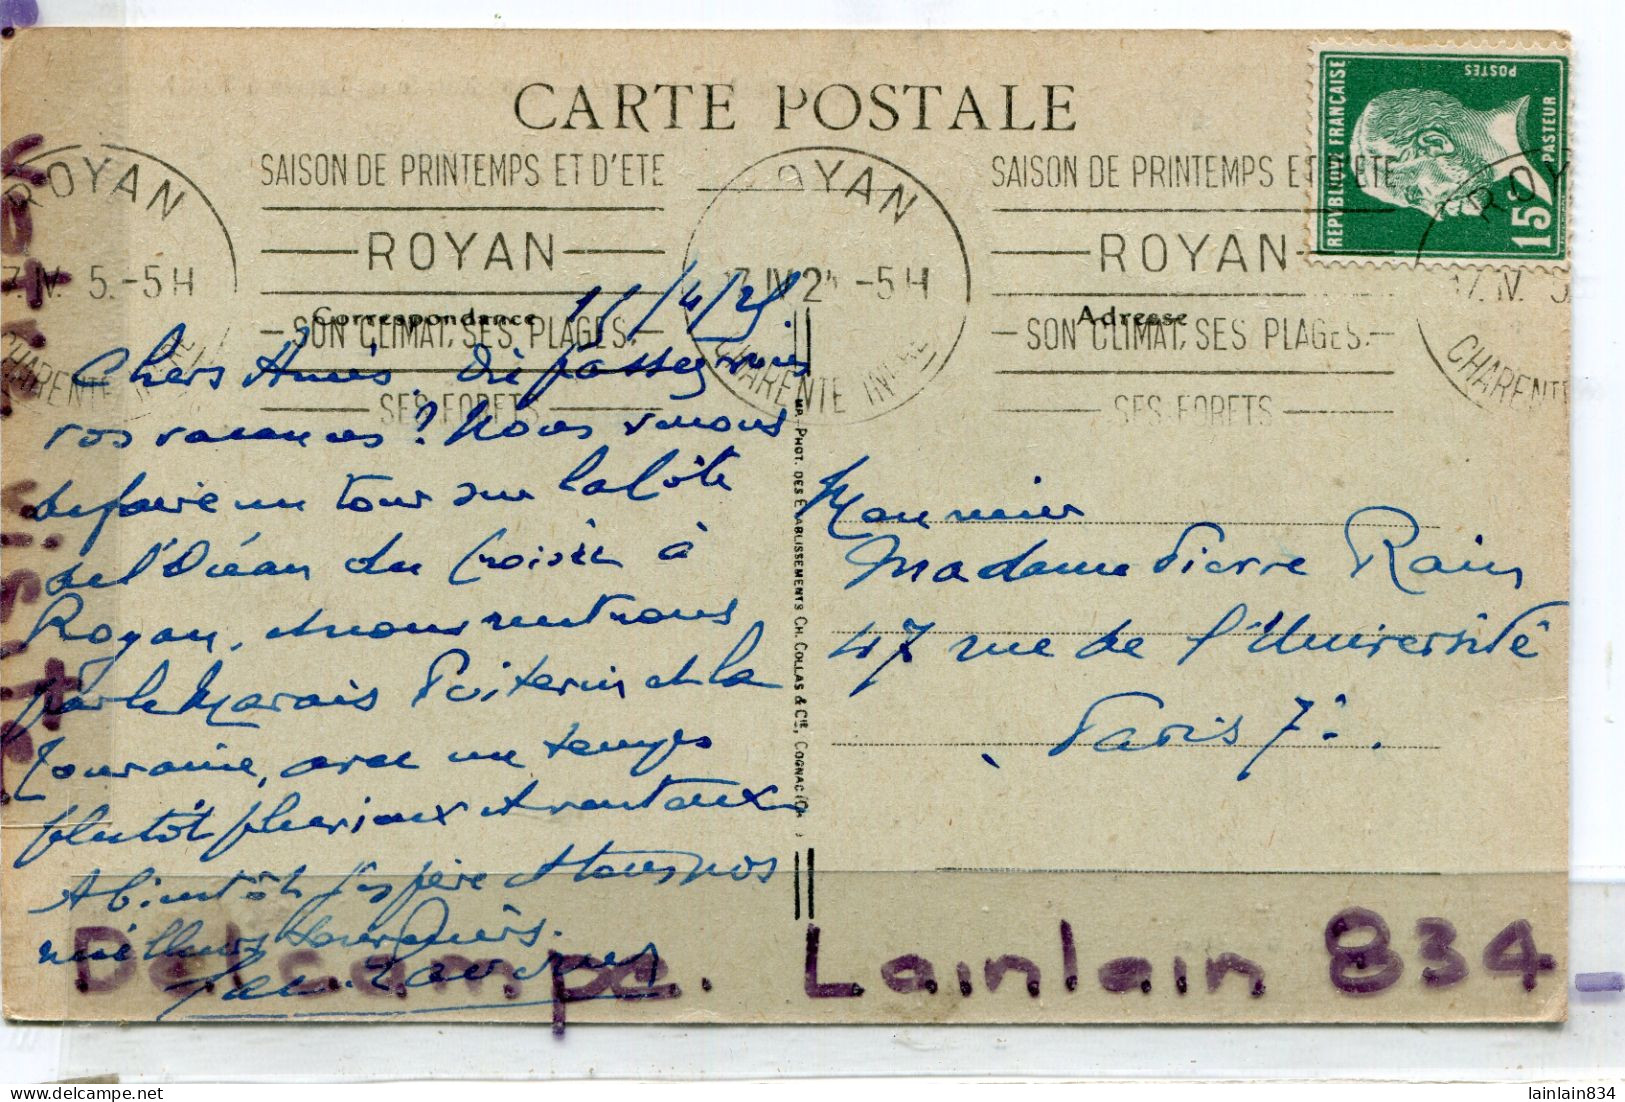 CARTE POSTALE
REPVBLIQVE FRANÇAISE
POSTES
PASTEUR
15c
ROYAN
17.IV. 5.-5H
CHARENTE INFRE
SAISON DE PRINTEMPS ET D'ETE
ROYAN
SON CLIMAT, SES PLAGES.
SES FORETS
ROYAN
17 IV 25 -5H
CHARENTE INFRE
SAISON DE PRINTEMPS ET D'ETE
ROYAN
SON CLIMAT, SES PLAGES.
SES FORETS
ROY
17.IV. 5
CHARENTE
Correspondance
Adresse
/4/25.
Chers Amis, passez vous
vos vacances? Nous venons
de faire un tour sur la Côte
de l'Océan du Croisic à
Royan, et nous rentrons
par le Marais Poitevin et la
Touraine, avec un temps
plutôt pluvieux et venteux
A bientôt j'espère et tous nos
meilleurs souvenirs.
MP. PHOT. DES ÉTABLISSEMENTS CH. COLLAS & CIE, COGNAC (CH
Monsieur
Madame Pierre Rain
47 rue de l'Université
Paris 7e.
Delcampe. Lainlain 834-
Delcampe.net
lainlain834